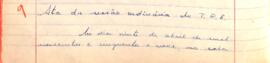 9 Ata da sessão ordinária do T. R. E.
Ao dia vinte de abril de mil
novecentos e cinquenta e nove, na sala